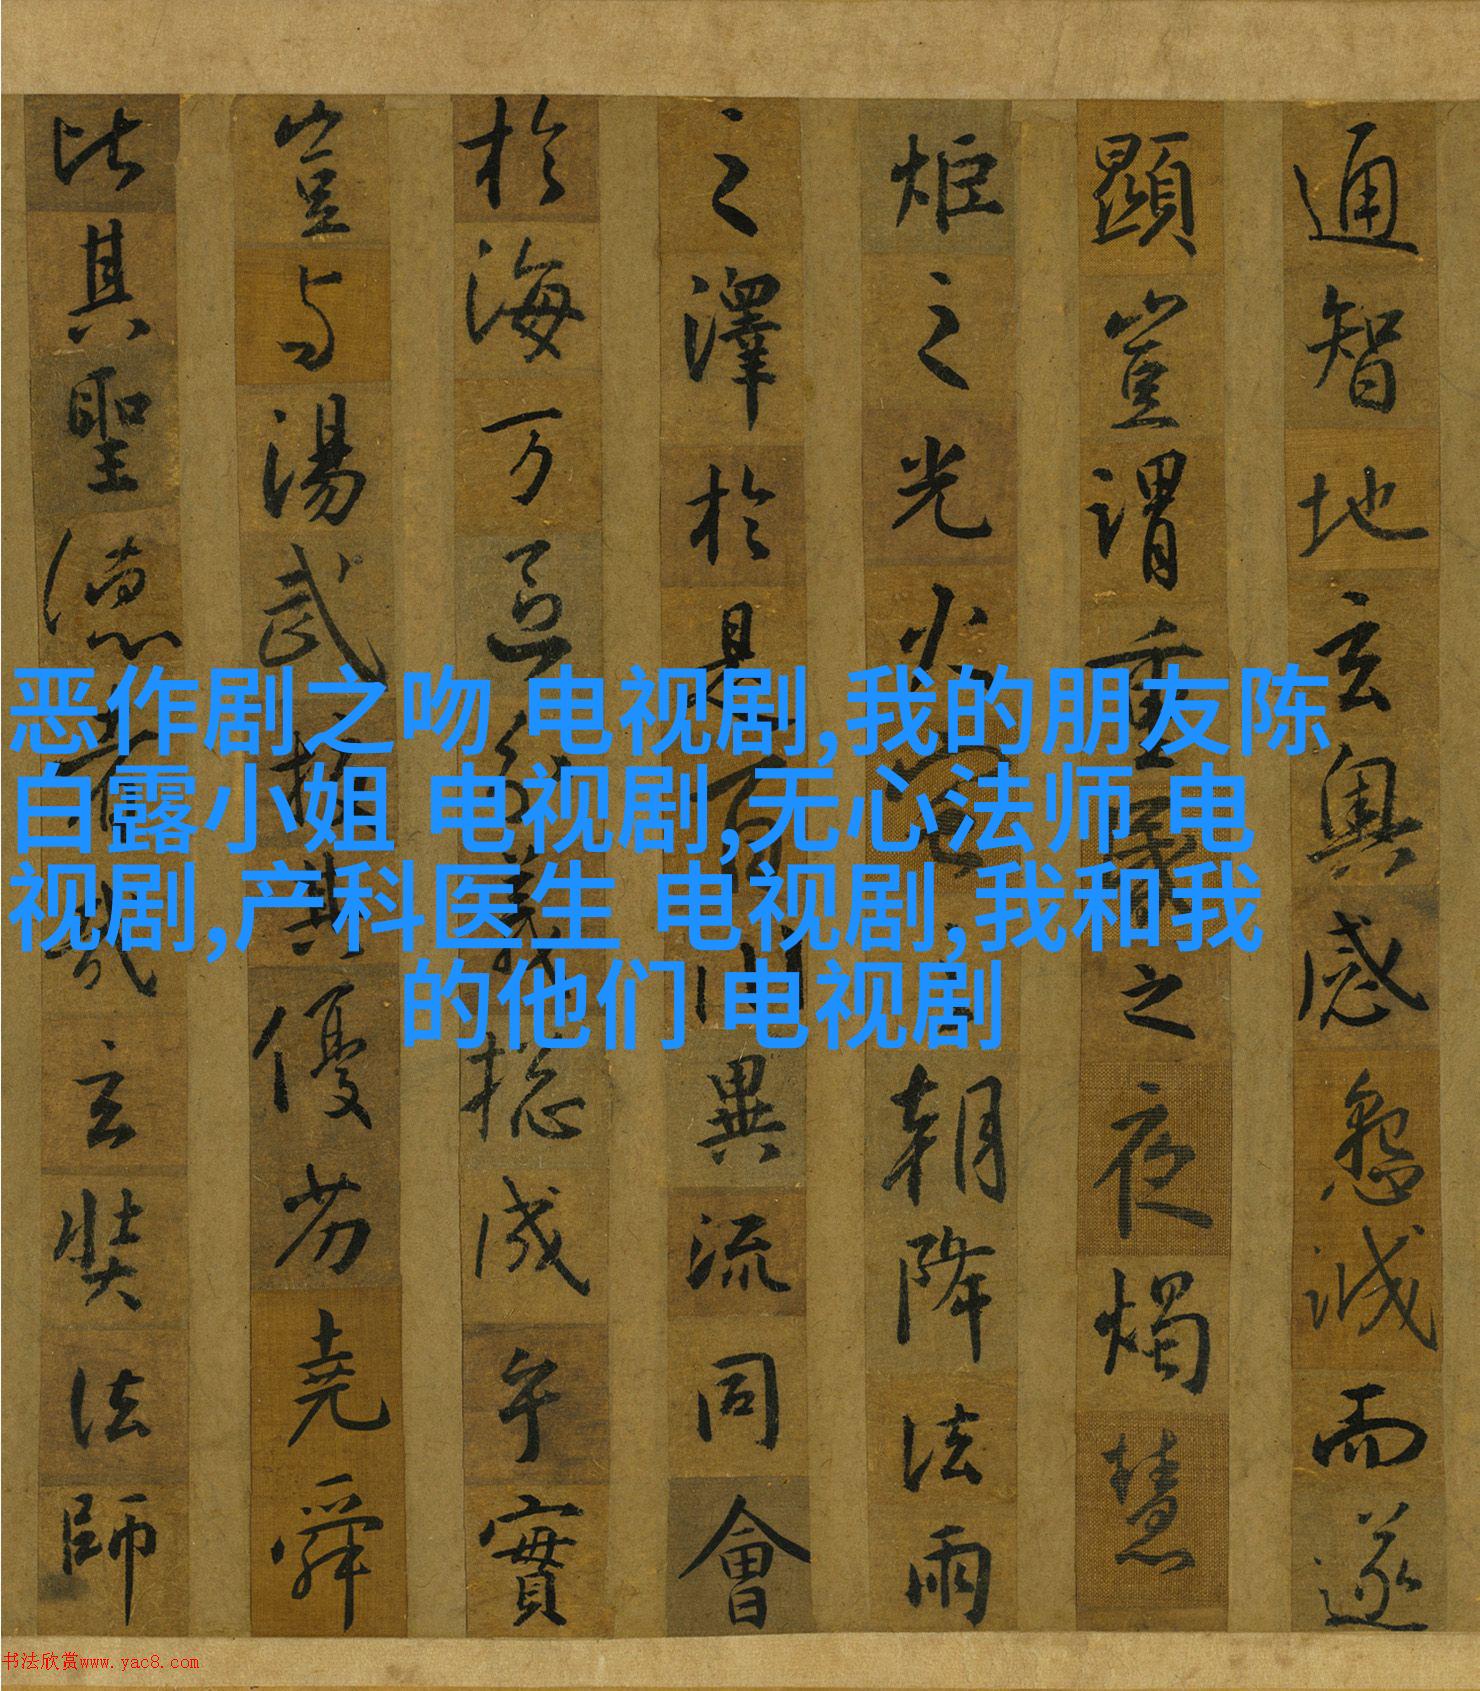 通智地玄奧感懇誠而遂
顯豈謂重昏之夜燭慧
炬之光火宅之朝降法雨
之澤於是百川異流同會
於海万區分義揔成乎實
豈与湯武校其優劣堯舜
比其聖德者哉玄奘法師
恶作剧之吻 电视剧,我的朋友陈
白露小姐 电视剧,无心法师 电
视剧,产科医生 电视剧,我和我
的他们 电视剧
书法欣赏www.yac8.com